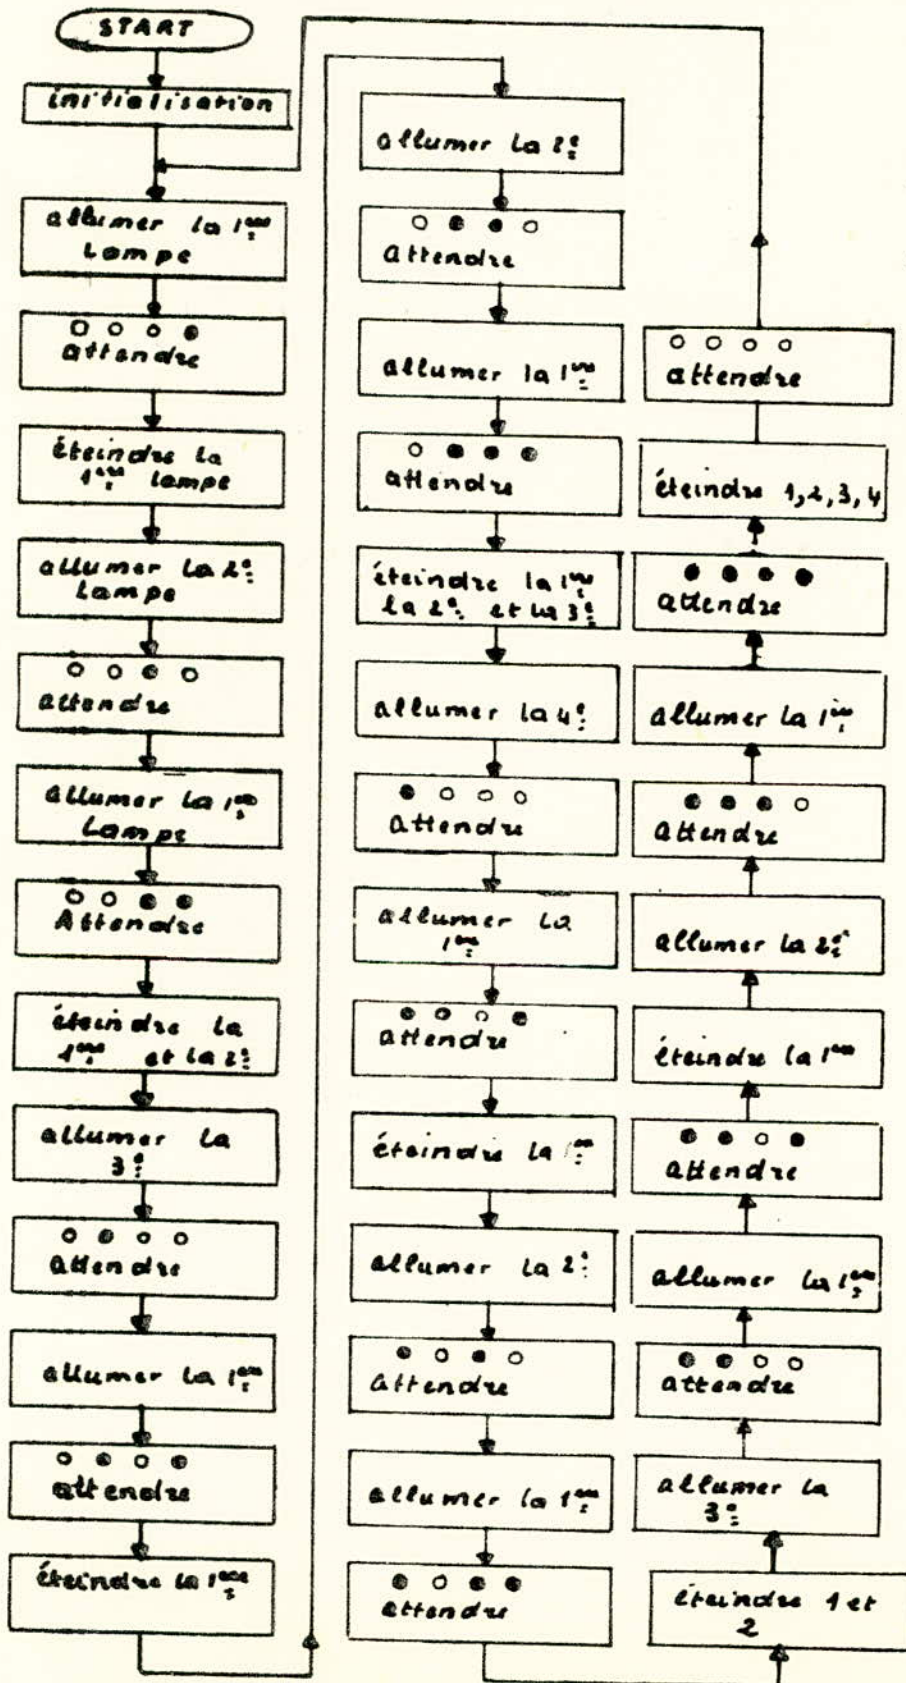 START
initialisation
allumer la 1ère
lampe
attendre
éteindre la
1ère lampe
allumer la 2e
lampe
attendre
allumer la 1ère
lampe
Attendre
éteindre la
1ère et la 2e
allumer la
3e
attendre
allumer la 1ère
attendre
éteindre la 1ère
allumer la 2e
attendre
allumer la 1ère
attendre
éteindre la 1ère
la 2e et la 3e
allumer la 4e
attendre
allumer la
1ère
attendre
éteindre la 1ère
allumer la 2e
attendre
allumer la 1ère
attendre
éteindre 1 et
2
allumer la
3e
attendre
allumer la 1ère
attendre
éteindre la 1ère
allumer la 2e
attendre
allumer la 1ère
attendre
éteindre 1, 2, 3, 4
attendre